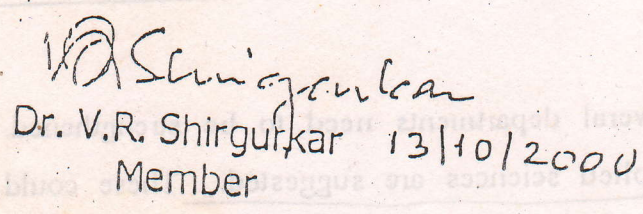 VR Shirgurkar
Dr. V.R. Shirgurkar 13/10/2000
Member